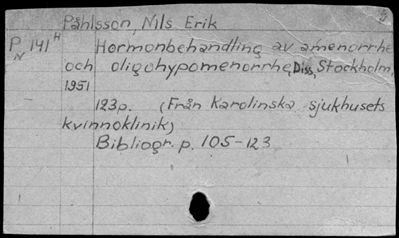 Påhlsson, Nils Erik
P N 141 H Hormonbehandling av amenorrhe
och oligohypomenorrhe, Diss, Stockholm,
1951
123p. (Från Karolinska sjukhusets
kvinnoklinik)
Bibliogr. p. 105-123